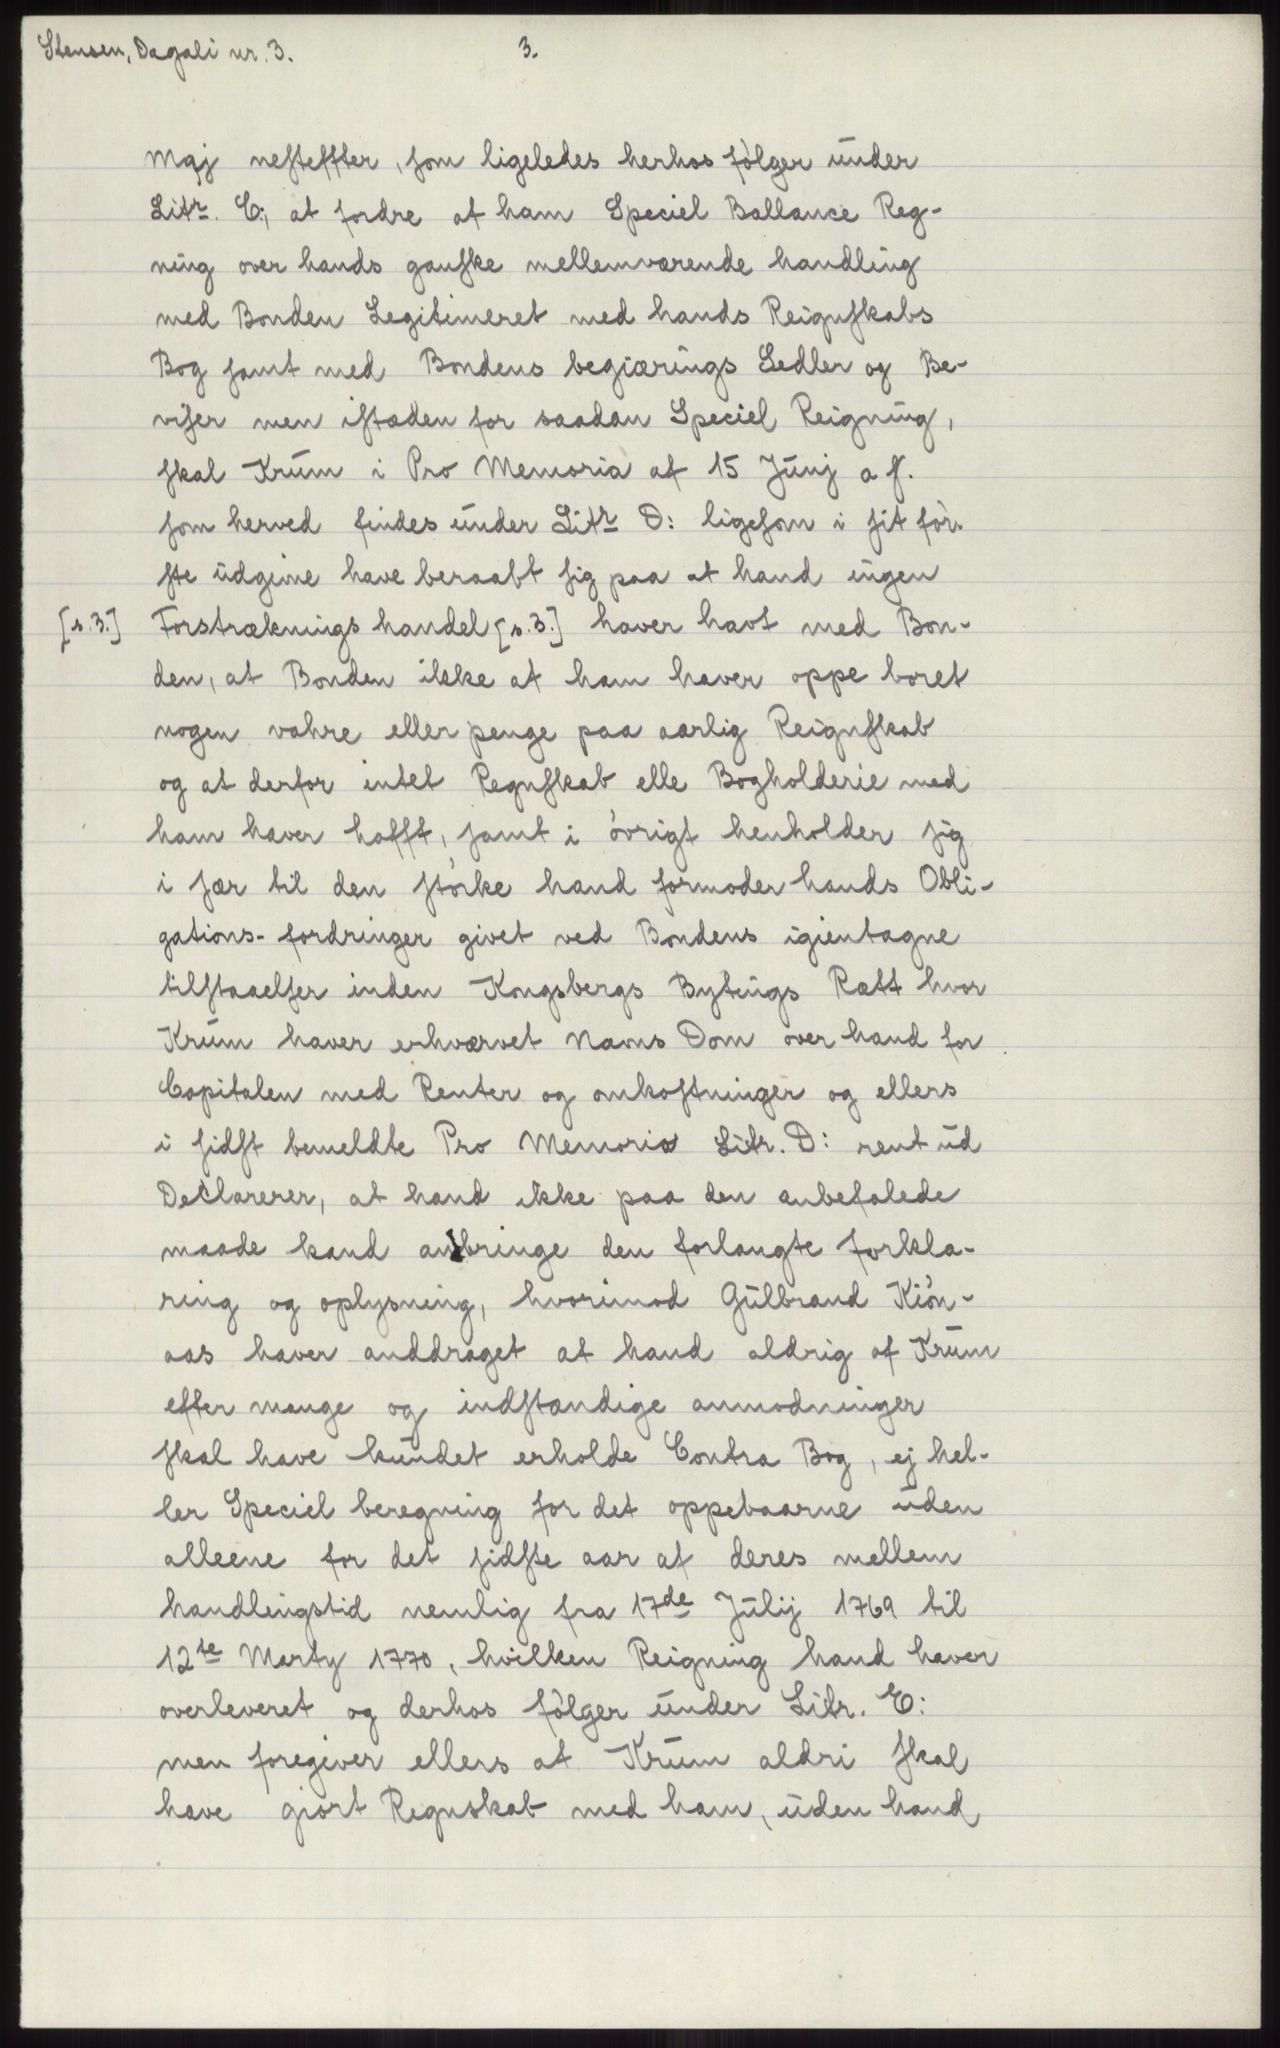 Stensen, Dagali nr. 3.
3.
Maj nesteffter, som ligeledes herhos følger under
Litr. C:, at fordre af ham Speciel Ballance Reg-
ning over hands ganske mellemværende handling
med Bonden Legitimeret med hands Reignskabs
Bog samt med Bondens begiærings Sedler og Be-
viser men istæden for saadan Speciel Reigning,
skal Krum i Pro Memoria af 15 Junj a f.
som herved findes under Litr D: ligesom i sit før-
ste udgivne have beraabt sig paa at hand ingen
[s.3.] Forstræknings handel [s.3.] haver havt med Bon-
den, at Bonden ikke af ham haver oppe boret
nogen vahre eller penge paa aarlig Reignskab
og at derfor intet Regnskab elle Bogholderie med
ham haver hafft, samt i øvrigt henholder sig
i sær til den störke hand formoder hands Obli-
gations-fordringer givet ved Bondens igientagne
tilstaaelser inden Kongsbergs Bytings Rætt hvor
Krum haver erhværvet Nams Dom over hand for
Capitalen med Renter og omkostninger og ellers
i sidst bemeldte Pro Memoria Litr. D: rent ud
Declarerer, at hand ikke paa den anbefalede
maade kand anbringe den forlangte forkla-
ring og oplysning, hvorimod Gulbrand Kiøn-
aas haver anddraget at hand aldrig af Krum
efter mange og indstændige anmodninger
skal have kundet erholde Contra Bog, ej hel-
ler Speciel beregning for det oppebaarne uden
alleene for det sidste aar af deres mellem
handlingstid nemlig fra 17de Julij 1769 til
12te Marty 1770, hvilken Reigning hand haver
overleveret og derhos følger under Litr. E:
men foregiver ellers at Krum aldri skal
have giort Regnskab med ham, uden hand